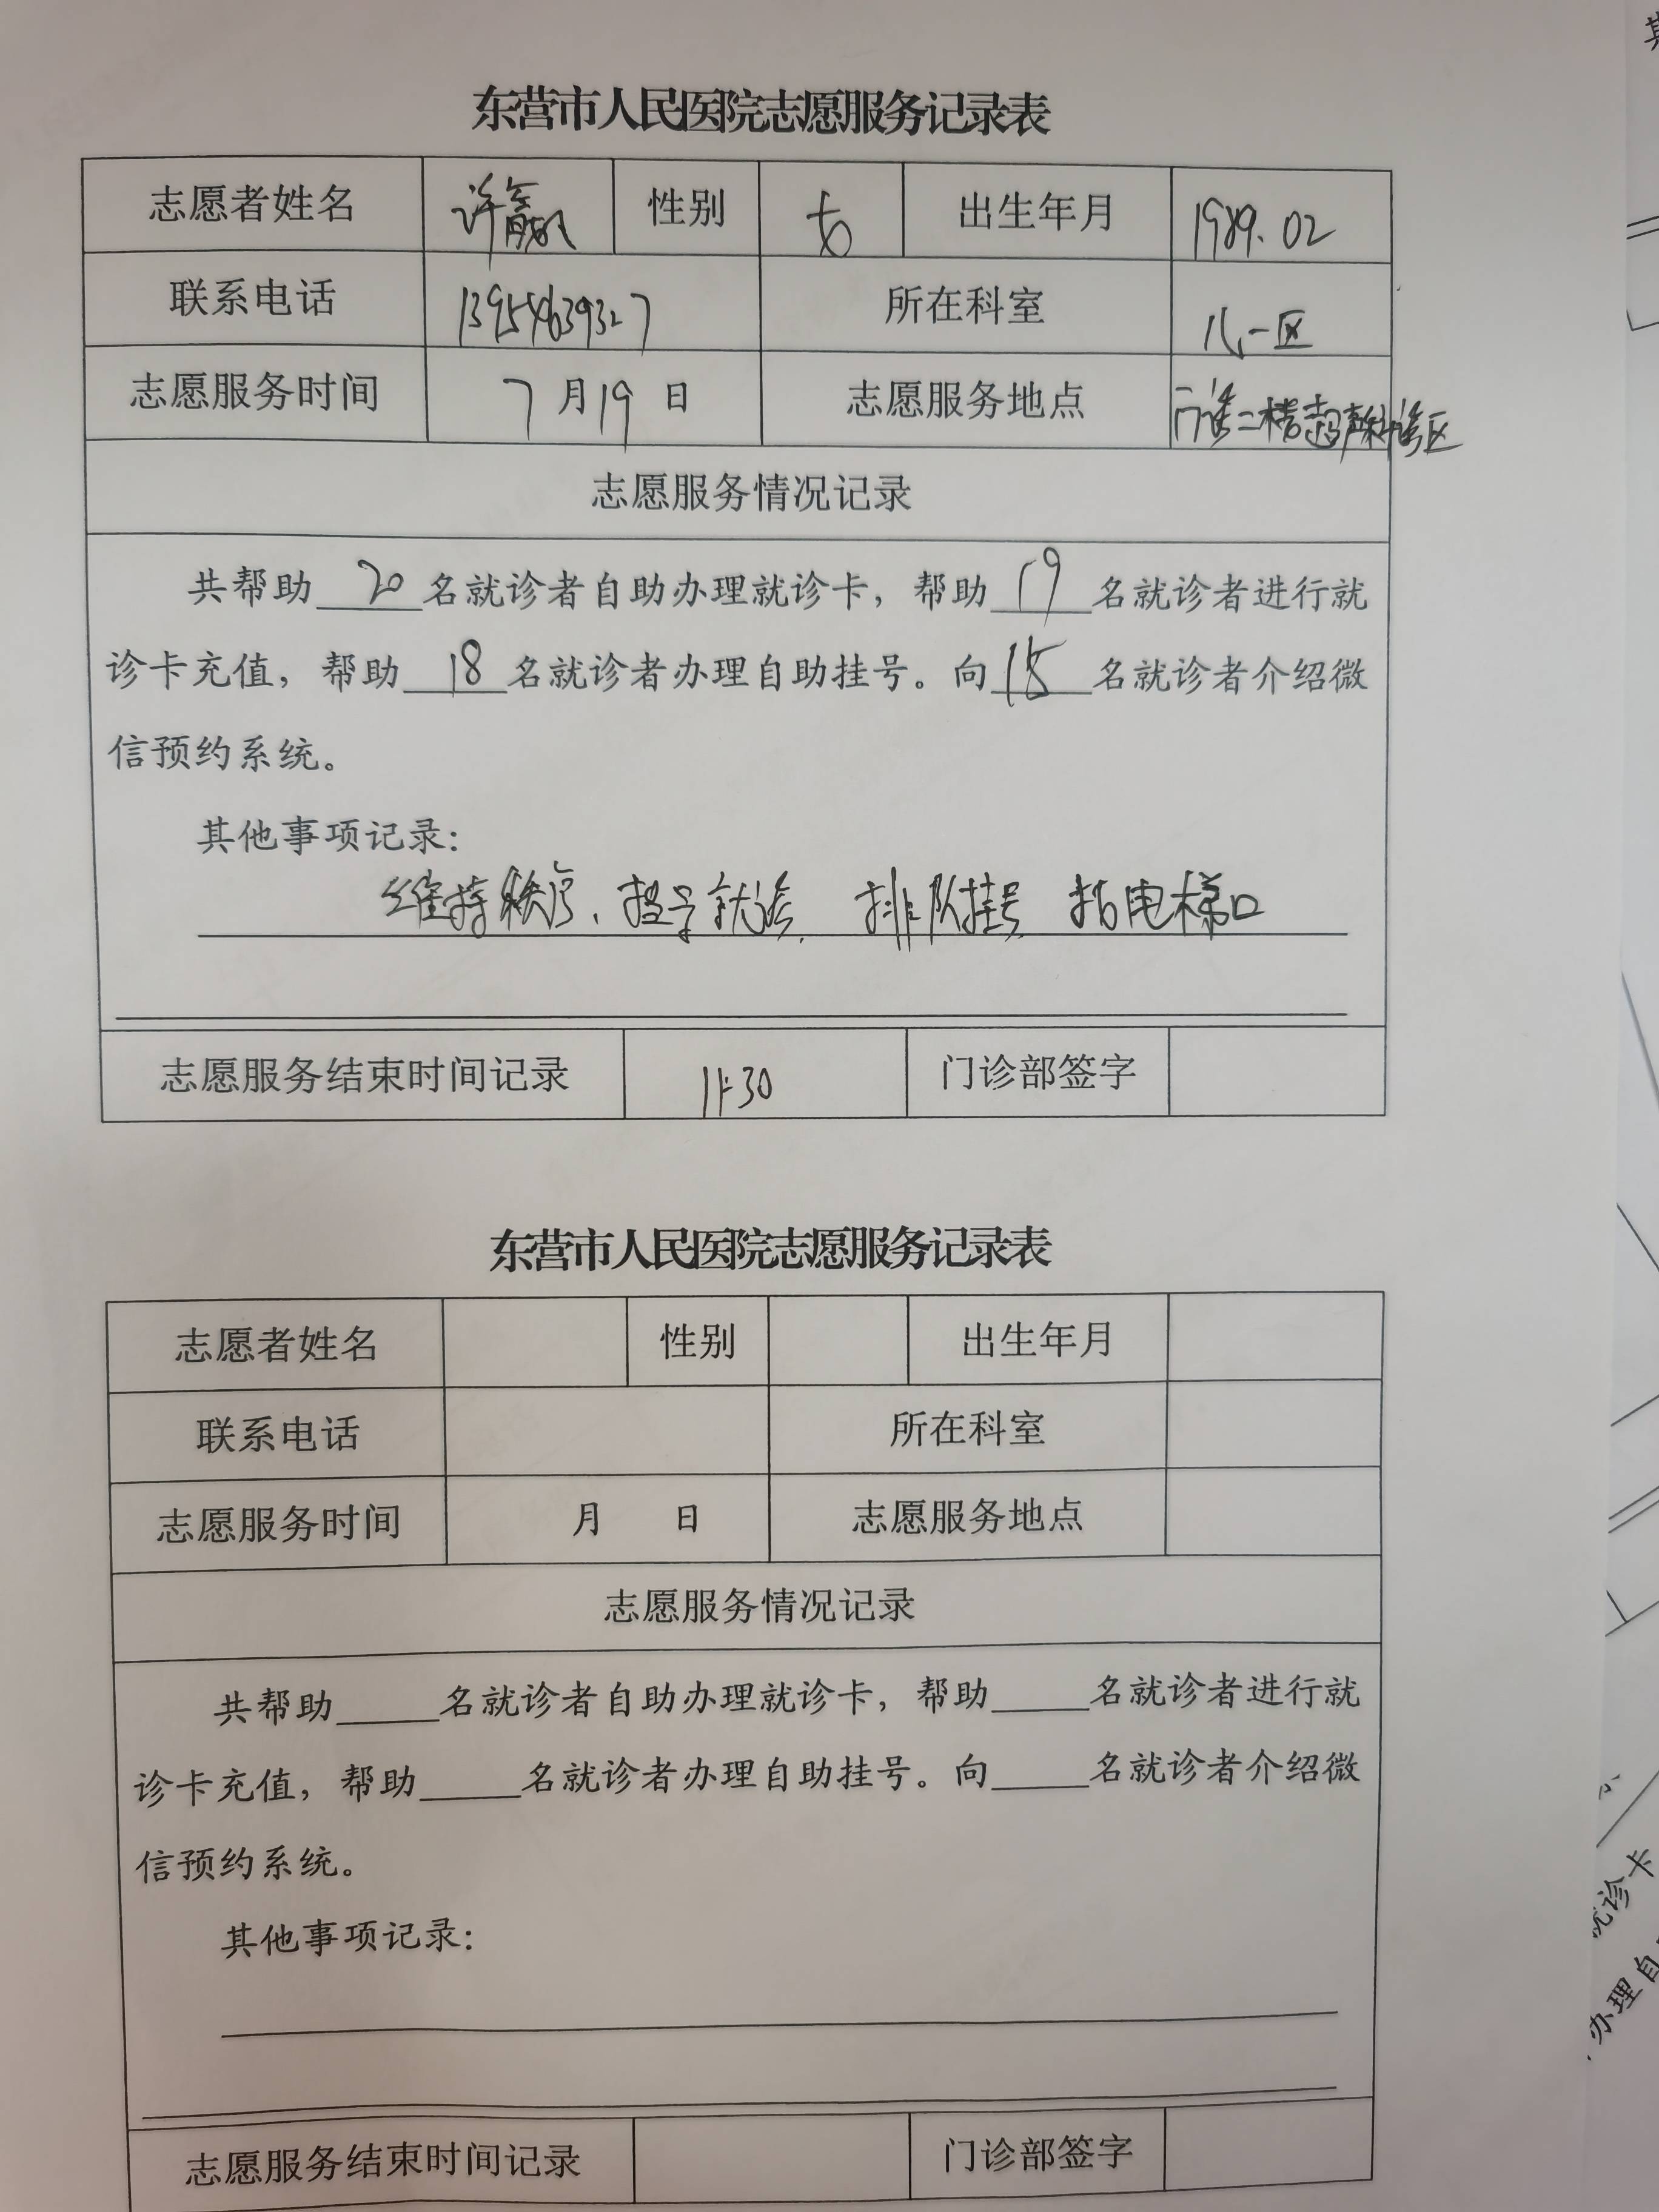 东营市人民医院志愿服务记录表
志愿者姓名 许赢 性别 女 出生年月 1989.02
联系电话 13954639327 所在科室 儿一区
志愿服务时间 7月19日 志愿服务地点 门诊二楼超声科诊区
志愿服务情况记录
共帮助20名就诊者自助办理就诊卡，帮助19名就诊者进行就
诊卡充值，帮助18名就诊者办理自助挂号。向15名就诊者介绍微
信预约系统。
其他事项记录：
维持秩序、指导就诊、排队挂号 指电梯口
志愿服务结束时间记录 11:30 门诊部签字
东营市人民医院志愿服务记录表
志愿者姓名 性别 出生年月
联系电话 所在科室
志愿服务时间 月 日 志愿服务地点
志愿服务情况记录
共帮助_____名就诊者自助办理就诊卡，帮助_____名就诊者进行就
诊卡充值，帮助_____名就诊者办理自助挂号。向_____名就诊者介绍微
信预约系统。
其他事项记录：
志愿服务结束时间记录 门诊部签字
就诊卡
办理自